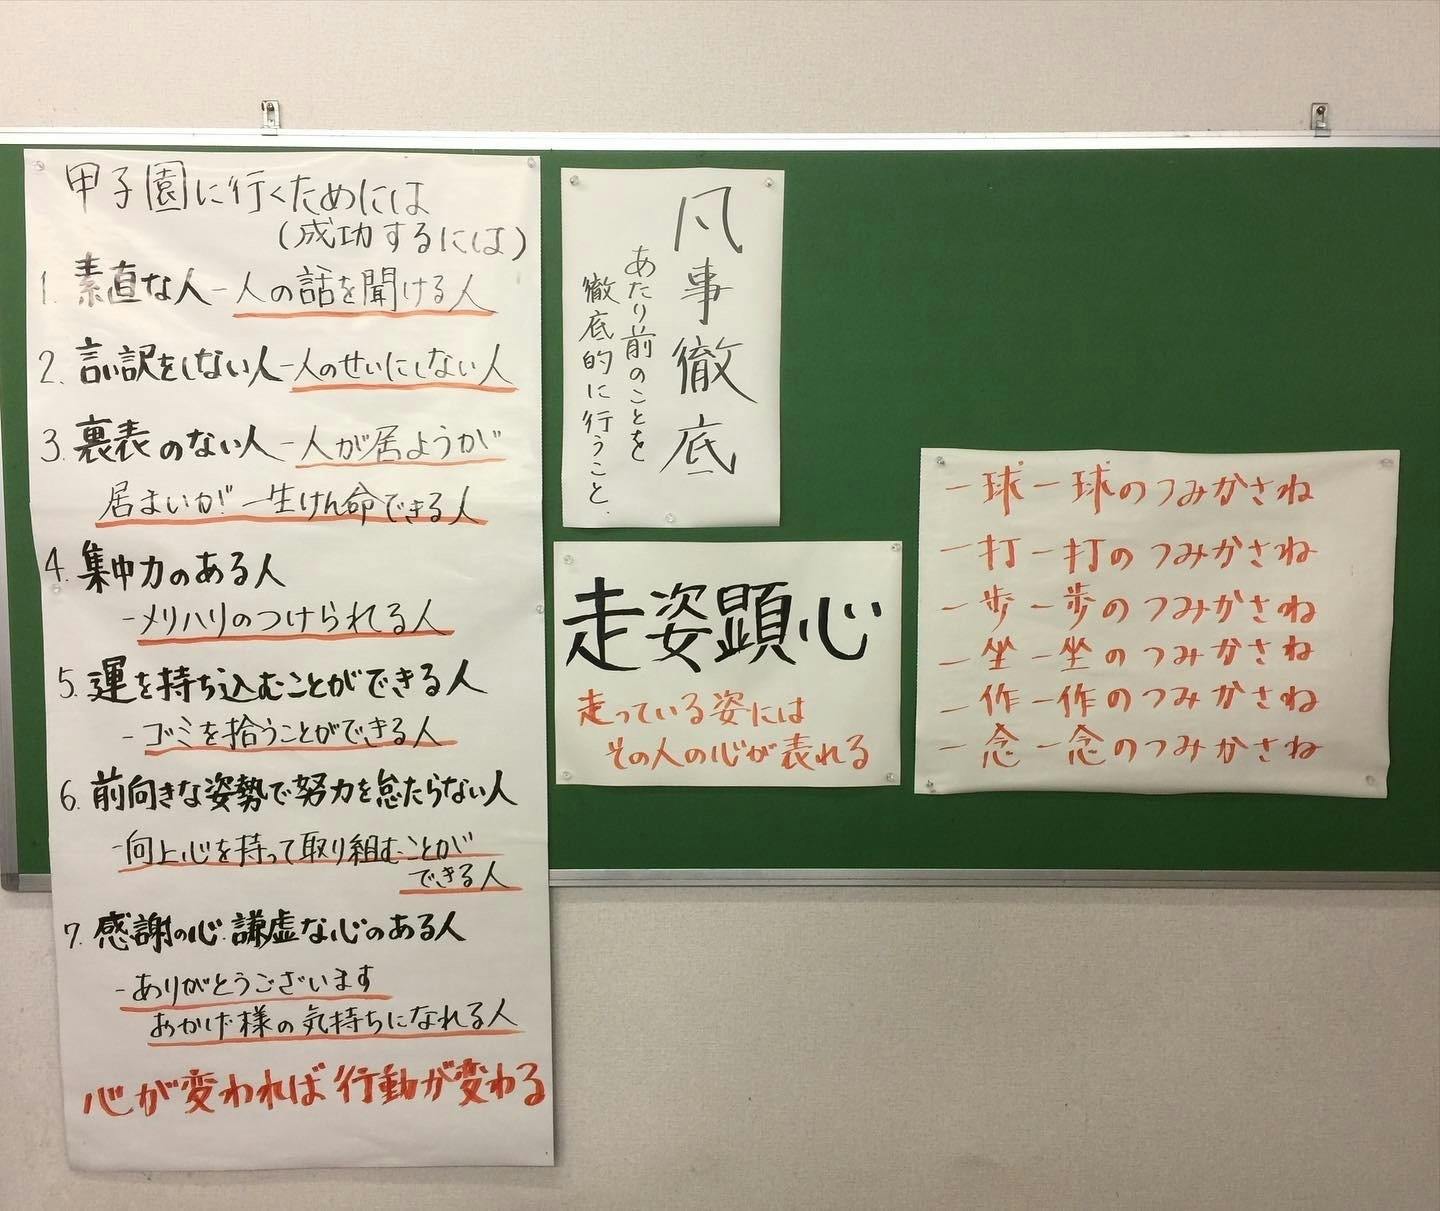 甲子園に行くためには
(成功するには)
1. 素直な人-人の話を聞ける人
2. 言い訳をしない人-人のせいにしない人
3. 裏表のない人-人が居ようが
居まいが一生けん命できる人
4. 集中力のある人
-メリハリのつけられる人
5. 運を持ち込むことができる人
-ゴミを拾うことができる人
6. 前向きな姿勢で努力を怠たらない人
-向上心を持って取り組むことが
できる人
7. 感謝の心・謙虚な心のある人
-ありがとうございます
おかげ様の気持ちになれる人
心が変われば行動が変わる
凡事徹底
あたり前のことを
徹底的に行うこと、
走姿顕心
走っている姿には
その人の心が表れる
一球一球のつみかさね
一打一打のつみかさね
一歩一歩のつみかさね
一坐一坐のつみかさね
一作一作のつみかさね
一念一念のつみかさね